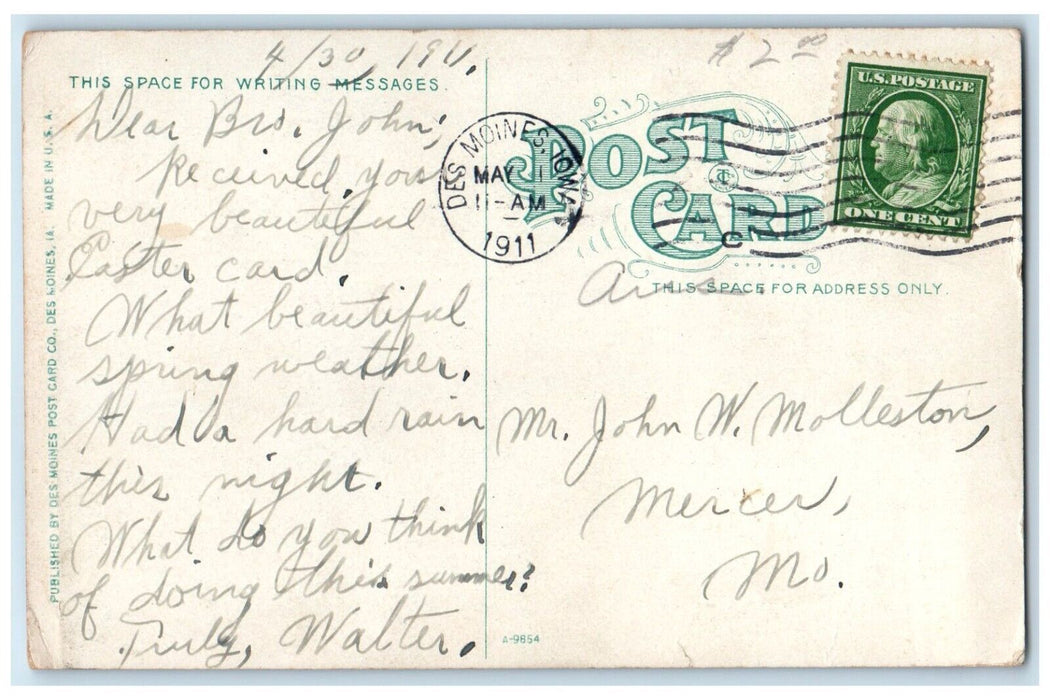 4/30, 1911.
$2.00
THIS SPACE FOR WRITING MESSAGES.
Dear Bro. John;
Received your
very beautiful
Easter card.
What beautiful
spring weather.
Had a hard rain
this night.
What do you think
of doing this summer?
Truly, Walter.
PUBLISHED BY DES MOINES POST CARD CO., DES MOINES, IA. MADE IN U.S.A.
DES MOINES, IOWA
MAY 1
11-AM
1911
POST
CARD
C
U.S. POSTAGE
ONE CENT
THIS SPACE FOR ADDRESS ONLY.
Mr. John W. Molleston,
Mercer,
Mo.
A-9854